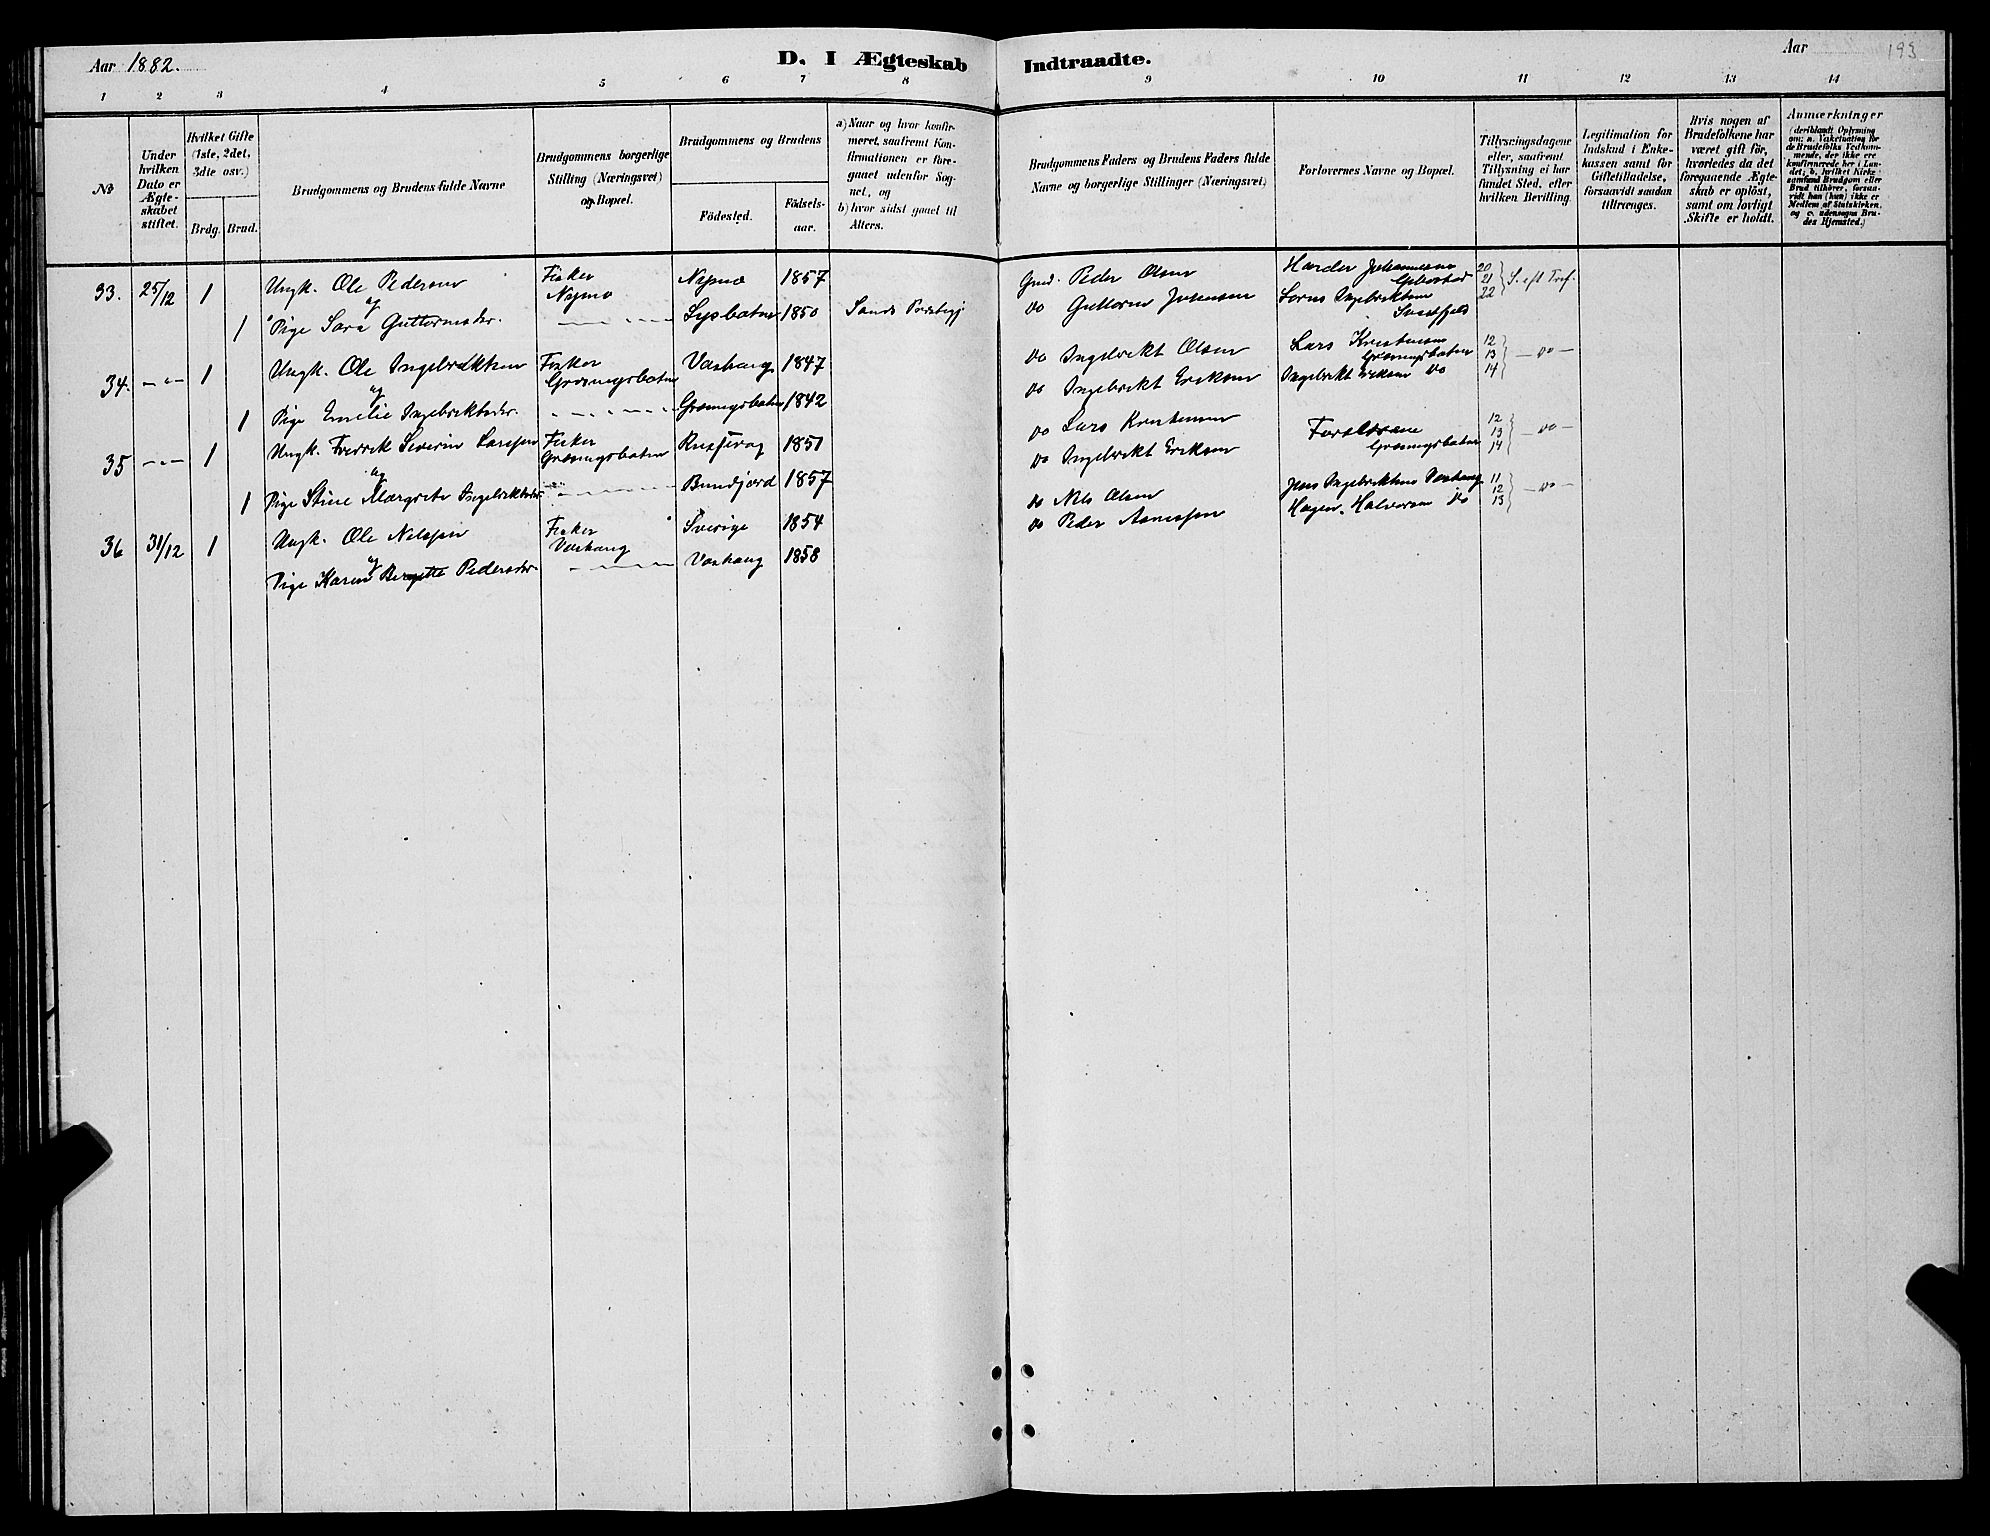 Aar 1882.
D. I Ægteskab Indtraadte.
Aar 193
1 2 3 4 5 6 7 8 9 10 11 12 13 14
No
Under hvilken Dato er Ægteskabet stiftet.
Hvilket Gifte (1ste, 2det, 3dte osv.)
Brdg. Brud.
Brudgommens og Brudens fulde Navne
Brudgommens borgerlige Stilling (Næringsvei) og Bopæl.
Brudgommens og Brudens
Födested.
Födselsaar.
a) Naar og hvor konfirmeret, saafremt Konfirmationen er foregaaet udenfor Sognet, og
b) hvor sidst gaaet til Alters.
Brudgommens Faders og Brudens Faders fulde Navne og borgerlige Stillinger (Næringsvei)
Forlovernes Navne og Bopæl.
Tillysningsdagene eller, saafremt Tillysning ei har fundet Sted, efter hvilken Bevilling.
Legitimation for Indskud i Enkekassen samt for Giftetilladelse, forsaavidt saadan tiltrænges.
Hvis nogen af Brudefolkene har været gift för, hvorledes da det foregaaende Ægteskab er oplöst, samt om lovligt Skifte er holdt.
Anmærkninger
(deriblandt Oplysning om: a. Vakcination for de Brudefolks Vedkommende, der ikke ere konfirmerede her i Landet; b. hvilket Kirkesamfund Brudgom eller Brud tilhörer, forsaavidt han (hun) ikke er Medlem af Statskirken, og c. udensogns Brudes Hjemsted.)
33. 25/12 1 Ungk. Ole Pedersen Fisker Nymo Nymo 1857 Gmd. Peder Olsen Harder Johannesen Gibostad 20 21 22 S. eft Tref.
og
1 Pige Sara Guttormsdr. Lysbotn 1850 do Guttorm Johnsen Sørns Ingebrigtsen
34. — " — 1 Ungk. Ole Ingebrektsen Fisker Grasmyrbotn Vashaug 1847 do Ingebrekt Olsen Lars Kristensen Grasmyrbotn 12 13 14 — do —
og
1 Pige Emelie Ingebrektsdr. Grasmyrbotn 1842 do Ingebrekt Eriksen Ingebrekt Eriksen do
35 — " — 1 Ungk. Fredrik Severin Larssen Fisker Grasmyrbotn Russevog 1851 do Lars Kristensen Grasmyrbotn 12 13 14 — do —
og
1 Pige Stine Margrete Ingebrektsdr. Bundjord 1857 do Ingebrekt Eriksen
36 31/12 1 Ungk. Ole Nilssen Fisker Vashaug Sverige 1854 do Nils Olsen Jens Ingebrektsen Vashaug 11 12 13 — do —
og
Pige Karen Bergitte Pedersdr. Vashaug 1858 do Peder Arnessen Hagen Halvorsen do